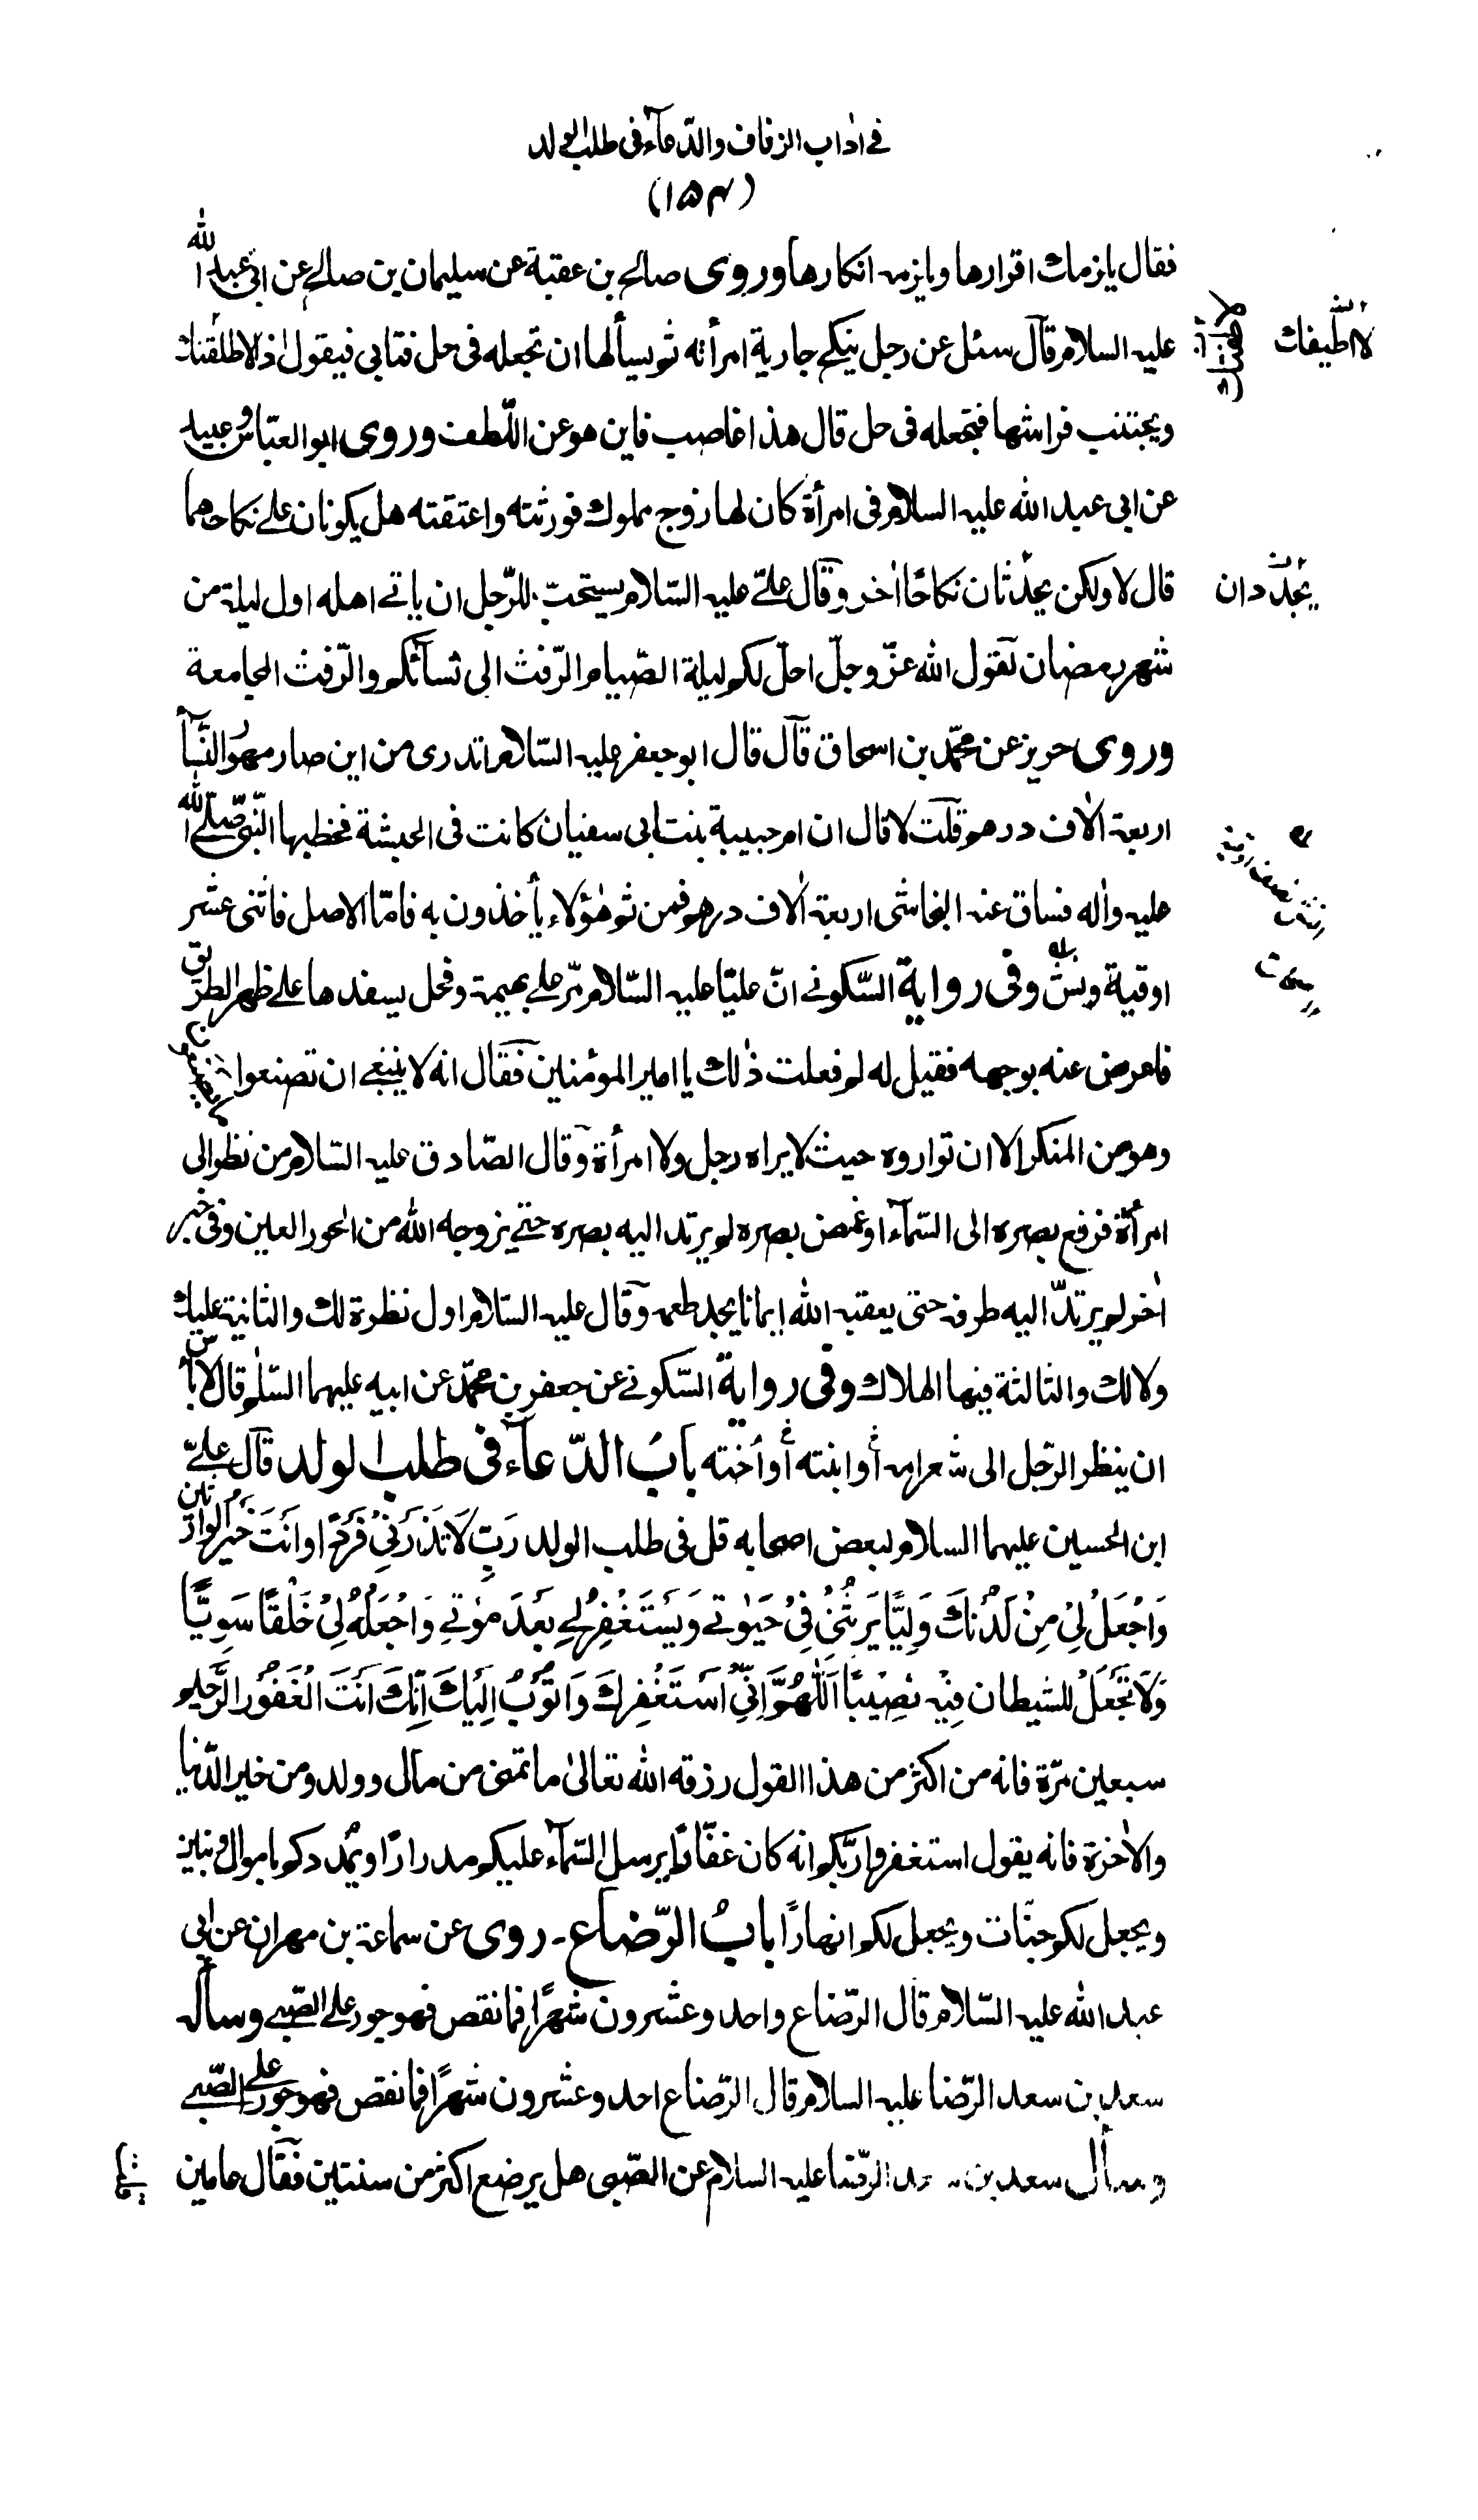 في اٰداب الزفاف والدّعآء فى طلب الولد
(١٥٣)
فقال يلزمك اقرارها ويلزمه انكارها وروى صالح بن عقبة عن سليمان بن صالح عن ابى عبد الله
عليه السلام قال سئل عن رجل ينكح جارية امرأته ثم يسألها ان تجعله فى حل فتابى فيقول اذالاطلقنك
لااطيفك
ويجتنب فراشها فتجعله فى حل قال هذا غاصب فاين هو عن اللّطف وروى ابو العبّاس وعبيد
عن ابى عبد الله عليه السلام فى امرأة كان لها زوج مملوك فورثته واعتقته هل يكونان على نكاحهما
قال لا ولكن يحدّثان نكاحًا اٰخر وقال علىّ عليه السّلام يستحبّ للرّجل ان ياتى اهله اول ليلة من
يجدّدان
شهر رمضان لقول الله عزّ وجلّ احلّ لكم ليلة الصّيام الرّفث الى نسآئكم والرّفث المجامعة
وروى حريز عن محمّد بن اسحاق قال قال ابو جعفر عليه السّلام اتدرى من اين صار مهور النّسآء
اربعة اٰلاف درهم قلت لا قال ان ام حبيبة بنت ابى سفيان كانت فى الحبشة فخطبها النّبىّ صلّى الله
عليه واٰله فساق عنه النجاشى اربعة اٰلاف درهم فمن ثم هٰؤلاء يأخذون به فامّا الاصل فاثنى عشر
اوقية ونشّ وفى رواية السّكونى انّ عليّا عليه السّلام مرّ على بهيمة وفحل يسفدها على ظهر الطريق
فاعرض عنه بوجهه فقيل له لم فعلت ذٰلك يا امير المؤمنين فقال انه لا ينبغى ان تصنعوا
وهو من المنكر الا ان تواروه حيث لا يراه رجل ولا امرأة وقال الصّادق عليه السّلام من نظر الى
امرأة فرفع بصره الى السّمآء او غمض بصره لم يرتد اليه بصره حتى يزوجه الله من الحور العين وفى خبر
اٰخر لم يرتدّ اليه طرفه حتى يعقبه الله ايمانا يجد طعمه وقال عليه السّلام اول نظرة لك والثانية عليك
ولا لك والثالثة فيها الهلاك وفى رواية السّكونى عن جعفر بن محمّد عن ابيه عليهما السّلٰم قال لا بأس
ان ينظر الرّجل الى شعر امه أو ابنته أو اُخته بابُ الدّعآء فى طلب الولد قال علىّ
ابن الحسين عليهما السلام لبعض اصحابه قل فى طلب الولد رَبِّ لَا تَذَرْنِيْ فَرْدًا وانَتَ خَيْرُ الوارثين
وَاجْعَلْ لِيْ مِنْ لَدُنْكَ وَلِيًّا يَرِثُنِيْ فِيْ حَيٰوتى وَيَسْتَغْفِرُ لِى بَعْدَ مَوْتى وَاجْعَلْهُ لِيْ خَلْقًا سَوِيًّا
وَلَا تَجْعَلْ للشيطان فِيْهِ نَصِيْبًا اَللّٰهُمَّ اِنِّيْ اَسْتَغْفِرُكَ وَاَتُوْبُ اِلَيْكَ اِنَّكَ اَنْتَ الْغَفُوْرُ الرَّحيم
سبعين مرّة فانه من اكثر من هذا القول رزقه الله تعالىٰ ما تمنى من مال وولد ومن خير الدّنيا
والاٰخرة فانه يقول استغفروا ربّكم انه كان غفّارًا يرسل السّمآء عليكم مدرارًا ويمددكم باموال وبنين
ويجعل لكم جنّات ويجعل لكم انهارًا بابُ الرّضاع۔ روى عن سماعة بن مهران عن ابى
عبد الله عليه السّلام قال الرّضاع واحد وعشرون شهرًا فما نقص فهو جور على الصّبى وسأل
سعد بن سعد الرّضا عليه السلام قال الرّضاع احد وعشرون شهرًا فما نقص فهو جور على الصّبى
وسأل سعد بن سعد الرّضا عليه السلام عن الصّبى هل يرضع اكثر من سنتين فقال عامين